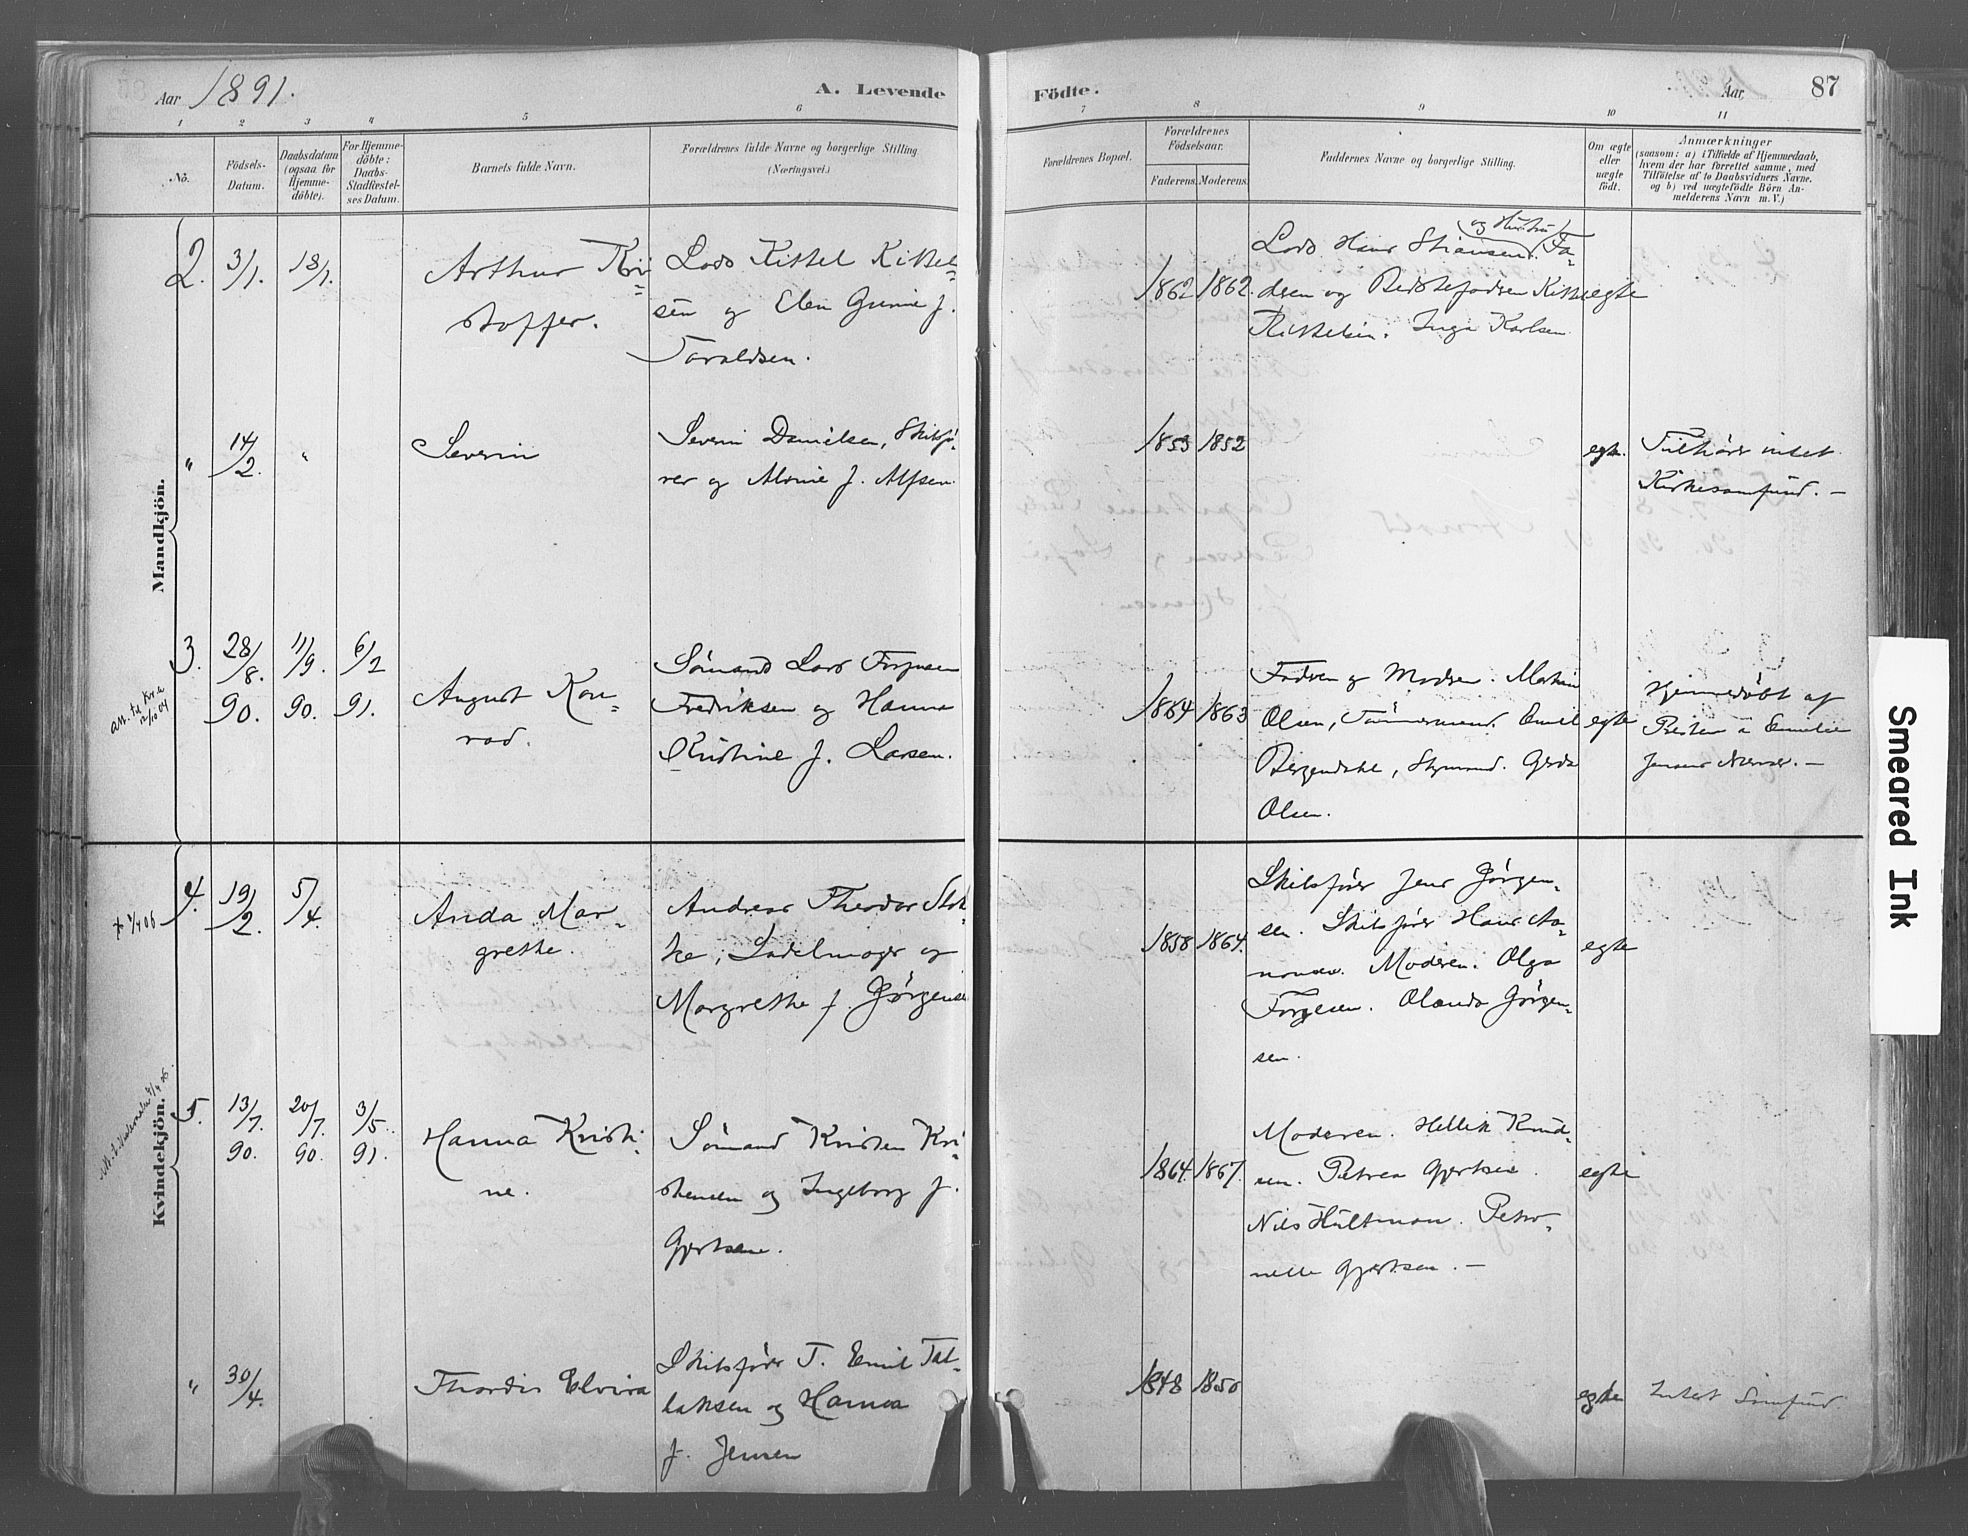 Aar 1891.
A. Levende
Födte.
Aar
87
1 2 3 4 5 6 7 8 9 10 11
No.
Födsels-
Datum.
Daabsdatum
(ogsaa for
Hjemme-
döbte).
For Hjemme-
döbte:
Daabs-
Stadfæstel-
ses Datum.
Barnets fulde Navn.
Forældrenes fulde Navne og borgerlige Stilling
(Næringsvei.)
Forældrenes Bopæl.
Forældrenes
Födselsaar.
Faderens.
Moderens.
Faddernes Navne og borgerlige Stilling.
Om ægte
eller
uægte
födt.
Anmærkninger
(saasom: a) i Tilfælde af Hjemmedaab,
hvem der har forrettet samme, med
Tilföielse af to Daabsvidners Navne.
og b) ved uægtefödte Börn An-
melderens Navn m. V.)
Mandkjön.
2. 3/1. 18/1.
Arthur Kri=
stoffer.
Lods Kittel Kittel=
sen og Elen Gunie f.
Taraldsen.
1862 1862.
og Hustru
Lods Hans Stiansen. Fa=
dren og Bedstefadren Kittel
Kittelsen. Inga Karlsen
egte
" 14/2. "
Severin
Severin Danielsen, Skibsfø=
rer og f. Alfsen.
1853 1852
egte.
Tilhører intet
Kirkesamfund. —
3. 28/8. 90. 11/9. 90. 6/2 91.
August Kon=
rad.
Sømand Lars Torjusen
Fredriksen og Hanna
Kristine f. Larsen.
1864 1863
Fadren og Modren. Martin
Olsen, Tømmermand. Emil
Bergendahl, Styrmand. Gerda
Olsen.
egte
Hjemmedøbt af
Emilie
Jensens Nærvær. —
Kvindekjön.
4. 19/2. 5/4.
Anda Mar=
grethe.
Andreas Theodor Stok=
ke, Sadelmager og
Margrethe f. Jørgensen
1858 1864.
Skibsfører Jens Jørgen=
sen. Skibsfører Hans Aa=
nonsen. Moderen. Olga
Torgesen. Olanda Jørgen=
sen.
egte
5. 13/7. 90. 20/7. 90. 3/5. 91.
Hanna Kristi=
ne.
Sømand Kristen Kri=
stensen og Ingeborg f.
Gjertsen.
1864. 1867.
Moderen. Hellik Knud=
sen. Petrea Gjertsen.
Nils Hultman. Petro=
nelle Gjertsen. —
egte
" 30/4.
Thordis Elvira
Skibsfører T. Emil Tal=
laksen og Hanna
f. Jensen
1848 1850
egte
Intet Samfund
Smeared Ink